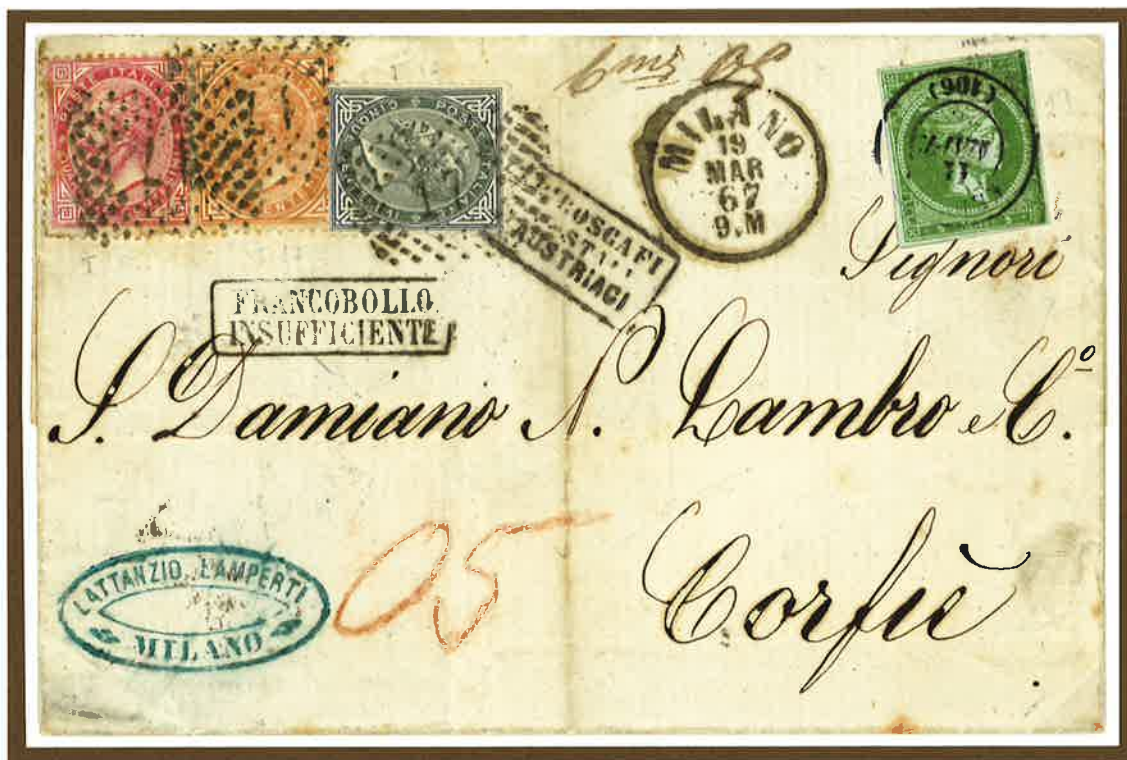 POSTE ITALIANE
MILANO
19
MAR
67
9.M
(106)
PIROSCAFI
POSTALI
AUSTRIACI
FRANCOBOLLO
INSUFFICIENTE
Signori
S. Damiano N. Lambro e C.º
Corfù
05
LATTANZIO LAMPERTI
MILANO